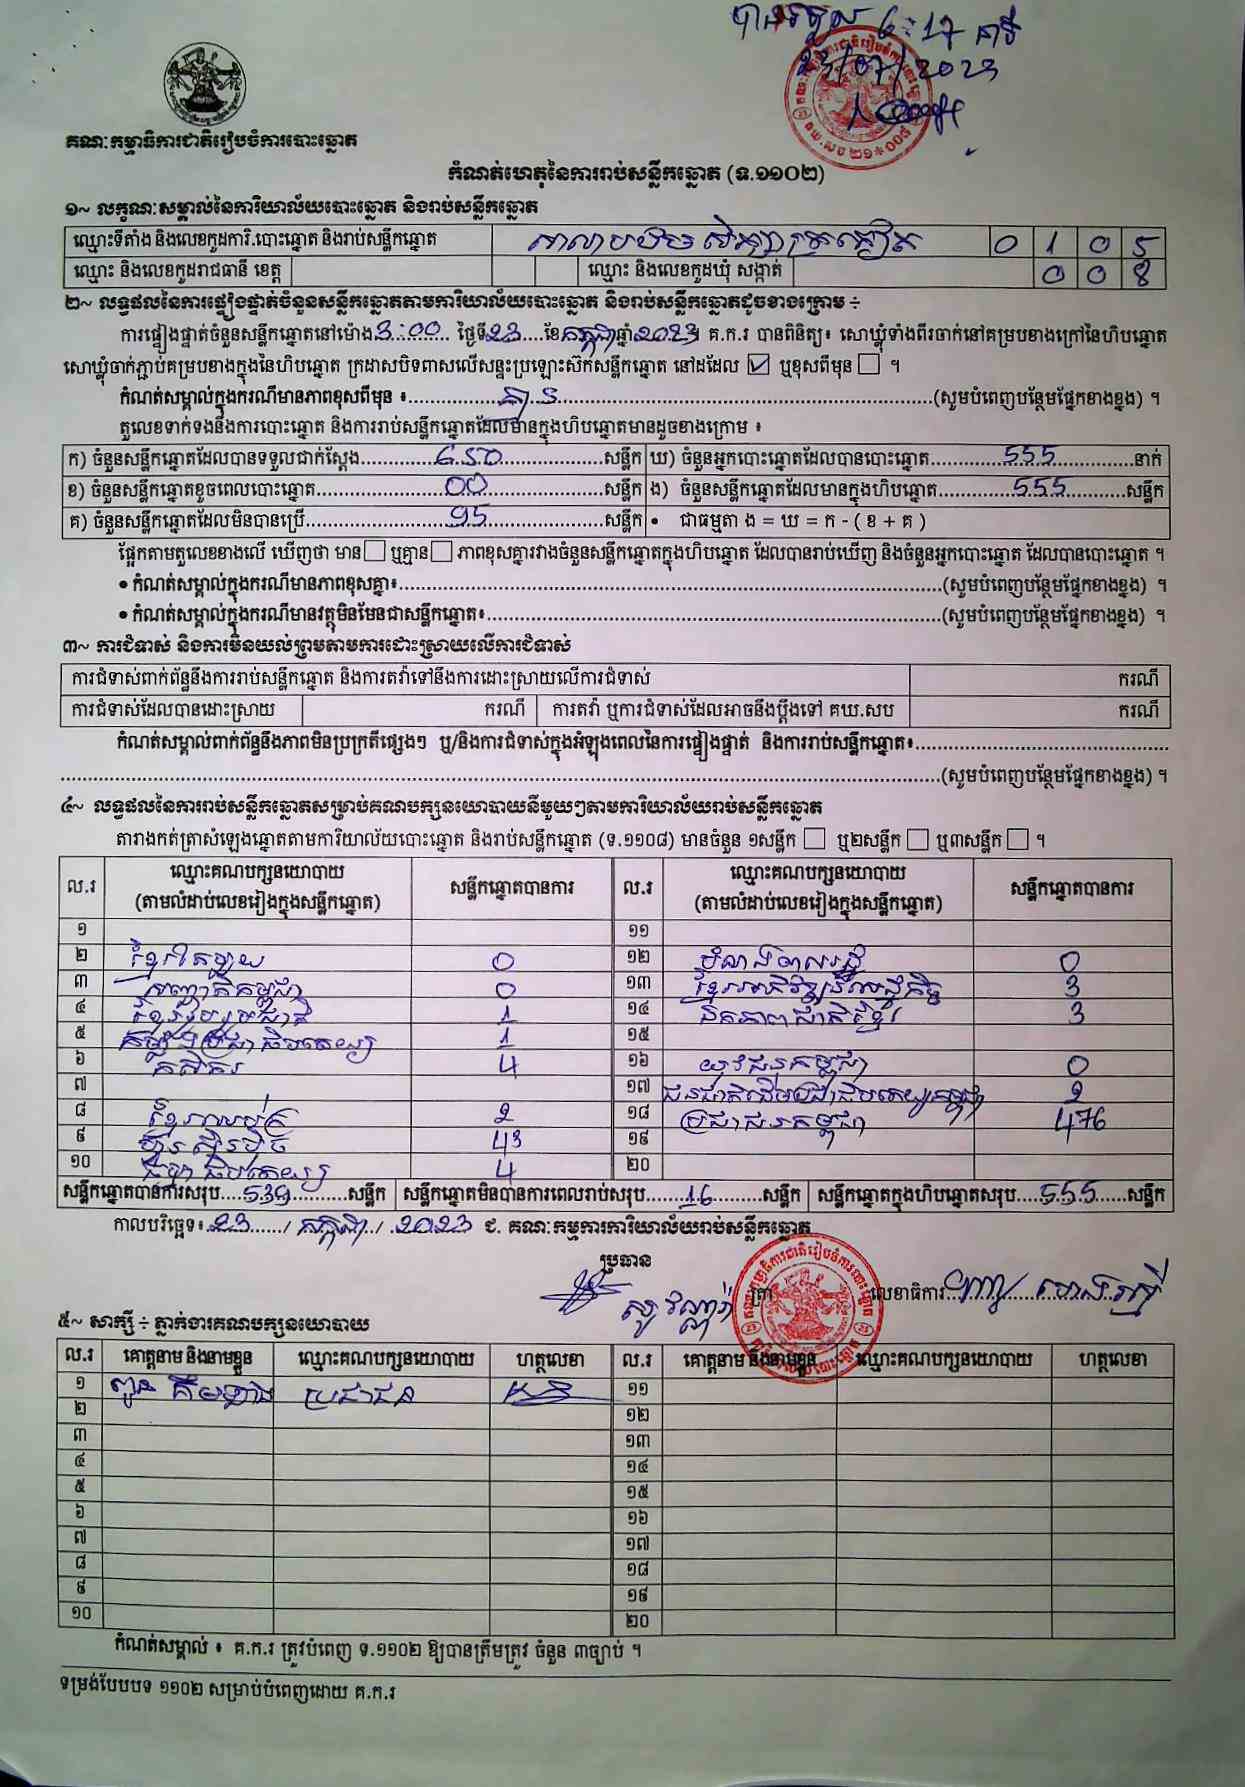 បានទទួល 6:17 នាទី
23/07/2023
គណៈកម្មាធិការជាតិរៀបចំការបោះឆ្នោត
កំណត់ហេតុនៃការរាប់សន្លឹកឆ្នោត (ទ.១១០២)
១~ លក្ខណៈសម្គាល់នៃការិយាល័យបោះឆ្នោត និងរាប់សន្លឹកឆ្នោត
ឈ្មោះទីតាំង និងលេខកូដការិ.បោះឆ្នោត និងរាប់សន្លឹកឆ្នោត 0 1 0 5
ឈ្មោះ និងលេខកូដរាជធានី ខេត្ត ឈ្មោះ និងលេខកូដឃុំ សង្កាត់ 0 0 8
២~ លទ្ធផលនៃការផ្ទៀងផ្ទាត់ចំនួនសន្លឹកឆ្នោតតាមការិយាល័យបោះឆ្នោត និងរាប់សន្លឹកឆ្នោតដូចខាងក្រោម ÷
ការផ្ទៀងផ្ទាត់ចំនួនសន្លឹកឆ្នោតនៅម៉ោង 3:00 ថ្ងៃទី 23 ខែ កក្កដា ឆ្នាំ 2023 គ.ក.រ បានពិនិត្យ៖ សោឃ្លុំទាំងពីរចាក់នៅគម្របខាងក្រៅនៃហិបឆ្នោត
សោឃ្លុំចាក់ភ្ជាប់គម្របខាងក្នុងនៃហិបឆ្នោត ក្រដាសបិទពាសលើសន្ទះប្រឡោះស៊កសន្លឹកឆ្នោត នៅដដែល ☑ ឬខុសពីមុន ☐ ។
កំណត់សម្គាល់ក្នុងករណីមានភាពខុសពីមុន ៖ គ្មាន (សូមបំពេញបន្ថែមផ្នែកខាងខ្នង) ។
តួលេខទាក់ទងនឹងការបោះឆ្នោត និងការរាប់សន្លឹកឆ្នោតដែលមានក្នុងហិបឆ្នោតមានដូចខាងក្រោម ៖
ក) ចំនួនសន្លឹកឆ្នោតដែលបានទទួលជាក់ស្ដែង 650 សន្លឹក ឃ) ចំនួនអ្នកបោះឆ្នោតដែលបានបោះឆ្នោត 555 នាក់
ខ) ចំនួនសន្លឹកឆ្នោតខូចពេលបោះឆ្នោត 00 សន្លឹក ង) ចំនួនសន្លឹកឆ្នោតដែលមានក្នុងហិបឆ្នោត 555 សន្លឹក
គ) ចំនួនសន្លឹកឆ្នោតដែលមិនបានប្រើ 95 សន្លឹក • ជាធម្មតា ង = ឃ = ក - ( ខ + គ )
ផ្អែកតាមតួលេខខាងលើ ឃើញថា មាន ☐ ឬគ្មាន ☐ ភាពខុសគ្នារវាងចំនួនសន្លឹកឆ្នោតក្នុងហិបឆ្នោត ដែលបានរាប់ឃើញ និងចំនួនអ្នកបោះឆ្នោត ដែលបានបោះឆ្នោត ។
• កំណត់សម្គាល់ក្នុងករណីមានភាពខុសគ្នា៖ (សូមបំពេញបន្ថែមផ្នែកខាងខ្នង) ។
• កំណត់សម្គាល់ក្នុងករណីមានវត្ថុមិនមែនជាសន្លឹកឆ្នោត៖ (សូមបំពេញបន្ថែមផ្នែកខាងខ្នង) ។
៣~ ការជំទាស់ និងការមិនយល់ព្រមតាមការដោះស្រាយលើការជំទាស់
ការជំទាស់ពាក់ព័ន្ធនឹងការរាប់សន្លឹកឆ្នោត និងការតវ៉ាទៅនឹងការដោះស្រាយលើការជំទាស់ ករណី
ការជំទាស់ដែលបានដោះស្រាយ ករណី ការតវ៉ា ឬការជំទាស់ដែលអាចនឹងប្ដឹងទៅ គឃ.សប ករណី
កំណត់សម្គាល់ពាក់ព័ន្ធនឹងភាពមិនប្រក្រតីផ្សេងៗ ឬ/និងការជំទាស់ក្នុងអំឡុងពេលនៃការផ្ទៀងផ្ទាត់ និងការរាប់សន្លឹកឆ្នោត៖
(សូមបំពេញបន្ថែមផ្នែកខាងខ្នង) ។
៤~ លទ្ធផលនៃការរាប់សន្លឹកឆ្នោតសម្រាប់គណបក្សនយោបាយនីមួយៗតាមការិយាល័យរាប់សន្លឹកឆ្នោត
តារាងកត់ត្រាសំឡេងឆ្នោតតាមការិយាល័យបោះឆ្នោត និងរាប់សន្លឹកឆ្នោត (ទ.១១០៨) មានចំនួន ១សន្លឹក ☐ ឬ២សន្លឹក ☐ ឬ៣សន្លឹក ☐ ។
ល.រ ឈ្មោះគណបក្សនយោបាយ (តាមលំដាប់លេខរៀងក្នុងសន្លឹកឆ្នោត) សន្លឹកឆ្នោតបានការ ល.រ ឈ្មោះគណបក្សនយោបាយ (តាមលំដាប់លេខរៀងក្នុងសន្លឹកឆ្នោត) សន្លឹកឆ្នោតបានការ
១ ១១
២ 0 ១២ 0
៣ 0 ១៣ ខ្មែរអភិវឌ្ឍន៍សេដ្ឋកិច្ច 3
៤ ខ្មែររួបរួមជាតិ 1 ១៤ ឯកភាពជាតិខ្មែរ 3
៥ កម្លាំងប្រជាធិបតេយ្យ 1 ១៥
៦ កសិករ 4 ១៦ យុវជនកម្ពុជា 0
៧ ១៧ ជនជាតិដើមប្រជាធិបតេយ្យកម្ពុជា 2
៨ ខ្មែរឈប់ក្រ 2 ១៨ ប្រជាជនកម្ពុជា 476
៩ ហ៊្វុនស៊ិនប៉ិច 43 ១៩
១០ ធម្មាធិបតេយ្យ 4 ២០
សន្លឹកឆ្នោតបានការសរុប 539 សន្លឹក សន្លឹកឆ្នោតមិនបានការពេលរាប់សរុប 16 សន្លឹក សន្លឹកឆ្នោតក្នុងហិបឆ្នោតសរុប 555 សន្លឹក
កាលបរិច្ឆេទ៖ 23 / កក្កដា / 2023 ជ. គណៈកម្មការការិយាល័យរាប់សន្លឹកឆ្នោត
ប្រធាន ត្រា លេខាធិការ
៥~ សាក្សី ÷ ភ្នាក់ងារគណបក្សនយោបាយ
ល.រ គោត្តនាម និងនាមខ្លួន ឈ្មោះគណបក្សនយោបាយ ហត្ថលេខា ល.រ គោត្តនាម និងនាមខ្លួន ឈ្មោះគណបក្សនយោបាយ ហត្ថលេខា
១ ប្រជាជន ១១
២ ១២
៣ ១៣
៤ ១៤
៥ ១៥
៦ ១៦
៧ ១៧
៨ ១៨
៩ ១៩
១០ ២០
កំណត់សម្គាល់ ៖ គ.ក.រ ត្រូវបំពេញ ទ.១១០២ ឱ្យបានត្រឹមត្រូវ ចំនួន ៣ច្បាប់ ។
ទម្រង់បែបបទ ១១០២ សម្រាប់បំពេញដោយ គ.ក.រ